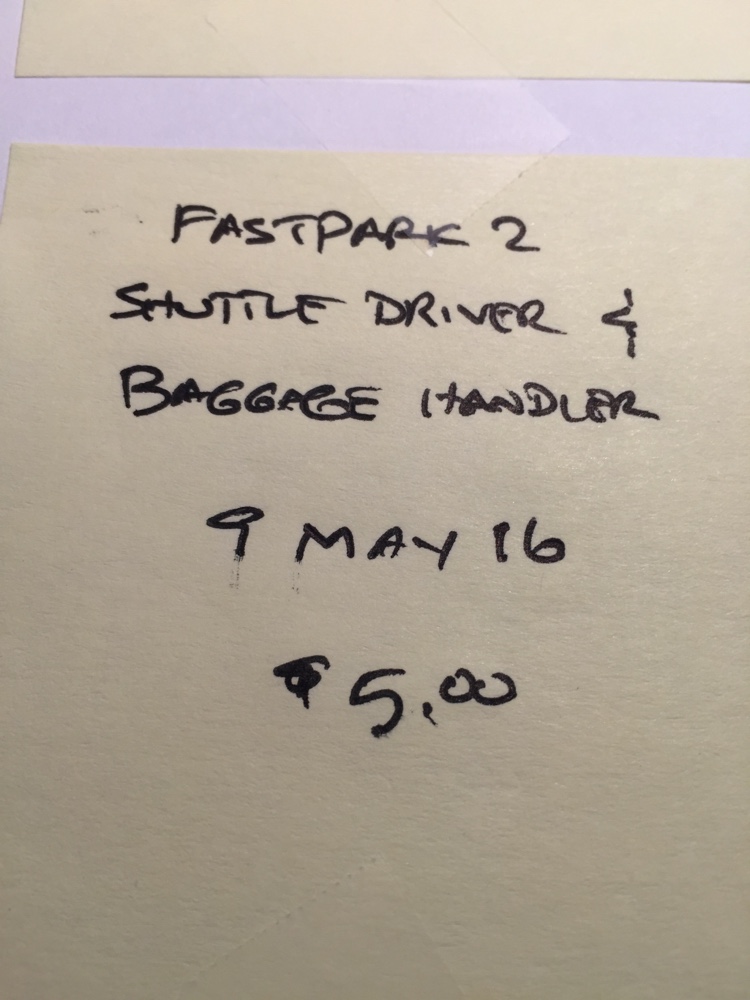 FASTPARK 2
SHUTTLE DRIVER &
BAGGAGE HANDLER
9 MAY 16
$5.00